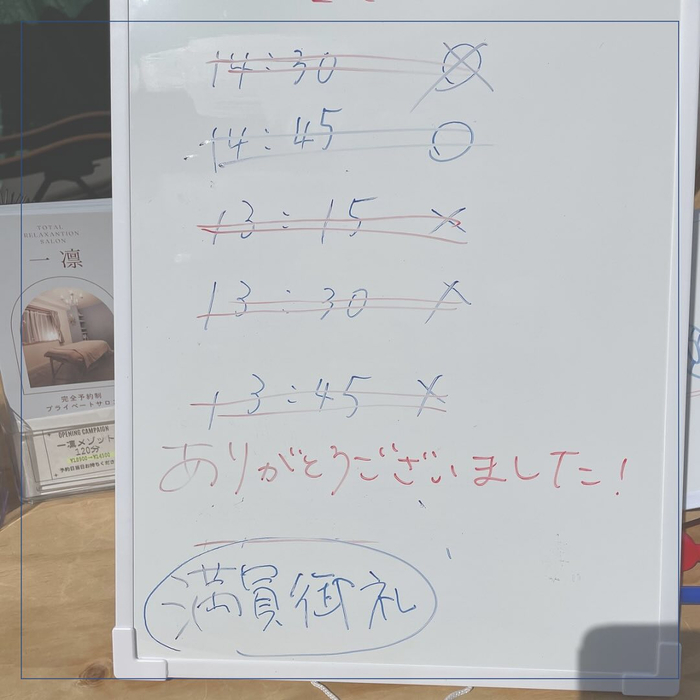 14:30 ○
14:45 ○
13:15 ×
13:30 ×
13:45 ×
ありがとうございました!
満員御礼
TOTAL
RELAXANTION
SALON
一凛
完全予約制
プライベートサロ
OPENING CAMPAIGN
一凛メソット
120分